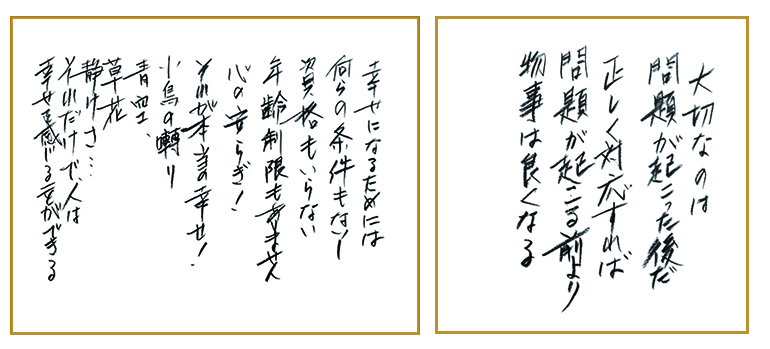 幸せになるためには
何らの条件もないし
資格もいらない
年齢制限もありません
心の安らぎ!
それが本当の幸せ!
小鳥の囀り
青空、
草花
静けさ…
それだけで人は
幸せを感じる事ができる
大切なのは
問題が起こった後だ
正しく対応すれば
問題が起こる前より
物事は良くなる